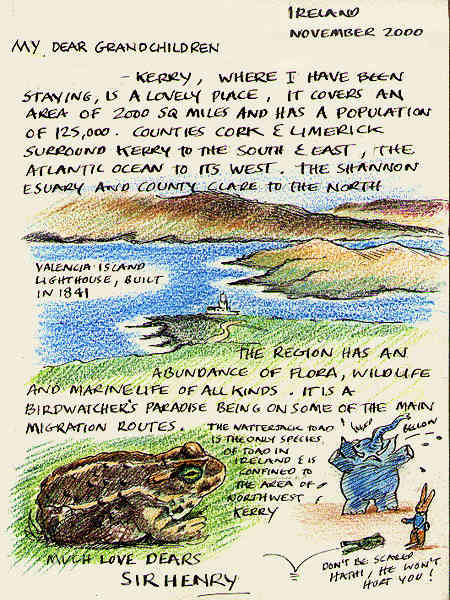 IRELAND
NOVEMBER 2000
MY DEAR GRANDCHILDREN
– KERRY, WHERE I HAVE BEEN
STAYING, IS A LOVELY PLACE, IT COVERS AN
AREA OF 2000 SQ MILES AND HAS A POPULATION
OF 125,000. COUNTIES CORK & LIMERICK
SURROUND KERRY TO THE SOUTH & EAST, THE
ATLANTIC OCEAN TO ITS WEST. THE SHANNON
ESUARY AND COUNTY CLARE TO THE NORTH
VALENCIA ISLAND
LIGHTHOUSE, BUILT
IN 1841
THE REGION HAS AN
ABUNDANCE OF FLORA, WILDLIFE
AND MARINE LIFE OF ALL KINDS. IT IS A
BIRDWATCHER'S PARADISE BEING ON SOME OF THE MAIN
MIGRATION ROUTES.
THE NATTERJACK TOAD
IS THE ONLY SPECIES
OF TOAD IN
IRELAND & IS
CONFINED TO
THE AREA OF
NORTHWEST
KERRY
DON'T BE SCARED
HATHI, HE WON'T
HURT YOU!
MUCH LOVE DEARS
SIR HENRY